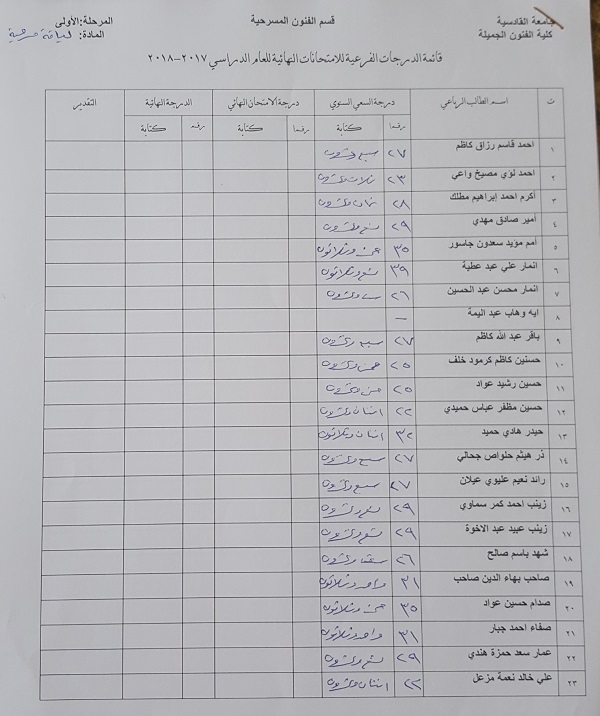 جامعة القادسية
كلية الفنون الجميلة
قسم الفنون المسرحية
المرحلة:الأولى
المادة: لياقة مسرحية
قائمة الدرجات الفرعية للامتحانات النهائية للعام الدراسي ٢٠١٧-٢٠١٨
ت اسم الطالب الرباعي درجة السعي السنوي درجة الامتحان النهائي الدرجة النهائية التقدير
رقما كتابة رقما كتابة رقما كتابة
١ احمد قاسم رزاق كاظم ٢٧ سبع وعشرون
٢ احمد لؤي مصيخ واعي ٢٣ ثلاث وعشرون
٣ أكرم احمد إبراهيم مطلك ٢٨ ثمان وعشرون
٤ أمير صادق مهدي ٢٩ تسع وعشرون
٥ أمم مؤيد سعدون جاسور ٣٥ خمس وثلاثون
٦ انمار علي عبد عطية ٣٩ تسع وثلاثون
٧ انمار محسن عبد الحسين ٢٦ ست وعشرون
٨ ايه وهاب عبد اليمة —
٩ باقر عبد الله كاظم ٢٧ سبع وعشرون
١٠ حسنين كاظم كرمود خلف ٢٥ خمس وعشرون
١١ حسين رشيد عواد ٢٥ خمس وعشرون
١٢ حسين مظفر عباس حميدي ٢٢ اثنان وعشرون
١٣ حيدر هادي حميد ٣٢ اثنان وثلاثون
١٤ ذر هيثم حلواص جحالي ٢٧ سبع وعشرون
١٥ رائد نعيم عليوي عيلان ٢٧ سبع وعشرون
١٦ زينب احمد كمر سماوي ٢٩ تسع وعشرون
١٧ زينب عبيد عبد الاخوة ٢٩ تسع وعشرون
١٨ شهد باسم صالح ٢٦ ستة وعشرون
١٩ صاحب بهاء الدين صاحب ٣١ واحد وثلاثون
٢٠ صدام حسين عواد ٣٥ خمس وثلاثون
٢١ صفاء احمد جبار ٣١ واحد وثلاثون
٢٢ عمار سعد حمزة هندي ٢٩ تسع وعشرون
٢٣ علي خالد نعمة مزعل ٢٢ اثنان وعشرون